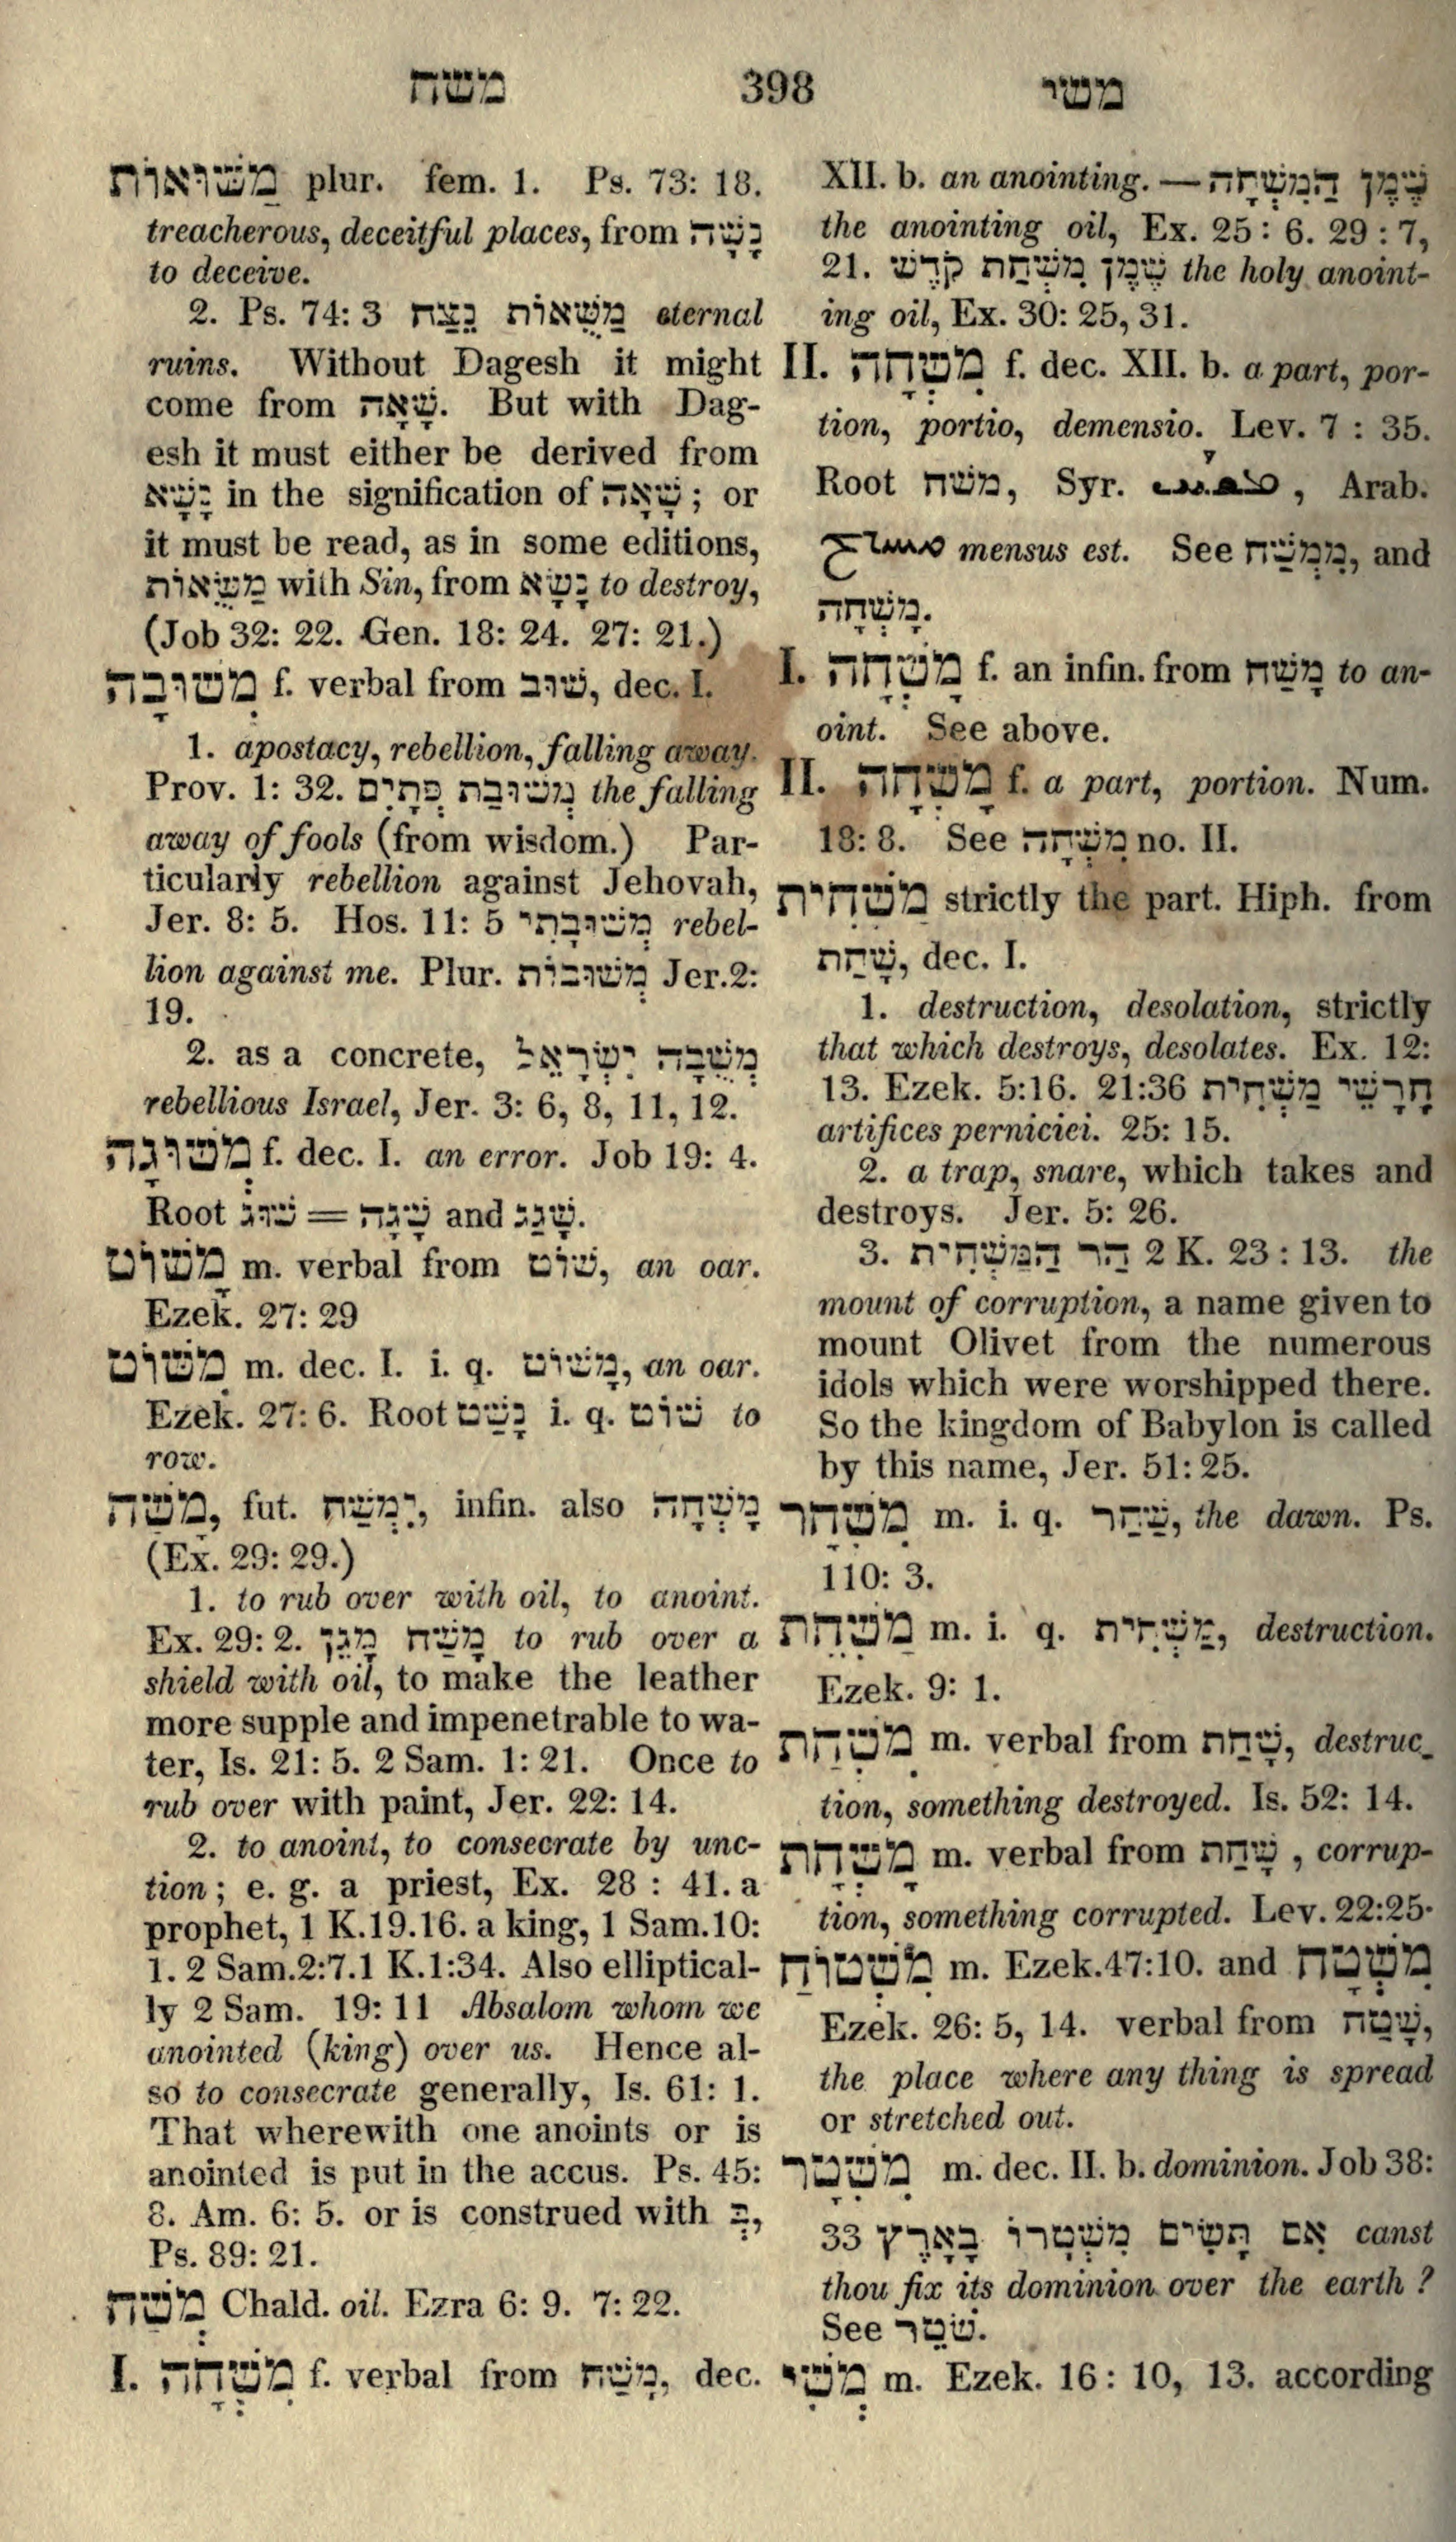 משח 398 משי
מַשּׁוּאוֹת plur. fem. 1. Ps. 73: 18.
treacherous, deceitful places, from נָשָׁה
to deceive.
2. Ps. 74: 3 מַשֻּׁאוֹת נֵצַח eternal
ruins. Without Dagesh it might
come from שָׁאָה. But with Dag-
esh it must either be derived from
נָשָׁא in the signification of שָׁאָה; or
it must be read, as in some editions,
מַשֻּׂאוֹת with Sin, from נָשָׂא to destroy,
(Job 32: 22. Gen. 18: 24. 27: 21.)
מְשׁוּבָה f. verbal from שׁוּב, dec. I.
1. apostacy, rebellion, falling away.
Prov. 1: 32. מְשׁוּבַת פְּתָיִם the falling
away of fools (from wisdom.) Par-
ticularly rebellion against Jehovah,
Jer. 8: 5. Hos. 11: 5 מְשׁוּבָתִי rebel-
lion against me. Plur. מְשׁוּבוֹת Jer. 2:
19.
2. as a concrete, מְשֻׁבָה יִשְׂרָאֵל
rebellious Israel, Jer. 3: 6, 8, 11, 12.
מְשׁוּגָה f. dec. I. an error. Job 19: 4.
Root שׁוּג = שָׁגָה and שָׁגַג.
מָשׁוֹט m. verbal from שׁוֹט, an oar.
Ezek. 27: 29
מִשּׁוֹט m. dec. I. i. q. מָשׁוֹט, an oar.
Ezek. 27: 6. Root נָשַׁט i. q. שׁוֹט to
row.
מָשַׁח, fut. יִמְשַׁח, infin. also מָשְׁחָה
(Ex. 29: 29.)
1. to rub over with oil, to anoint.
Ex. 29: 2. מָשַׁח מָגֵן to rub over a
shield with oil, to make the leather
more supple and impenetrable to wa-
ter, Is. 21: 5. 2 Sam. 1: 21. Once to
rub over with paint, Jer. 22: 14.
2. to anoint, to consecrate by unc-
tion; e. g. a priest, Ex. 28 : 41. a
prophet, 1 K.19.16. a king, 1 Sam.10:
1. 2 Sam.2:7.1 K.1:34. Also elliptical-
ly 2 Sam. 19: 11 Absalom whom we
anointed (king) over us. Hence al-
so to consecrate generally, Is. 61: 1.
That wherewith one anoints or is
anointed is put in the accus. Ps. 45:
8. Am. 6: 5. or is construed with בְּ,
Ps. 89: 21.
מְשַׁח Chald. oil. Ezra 6: 9. 7: 22.
I. מִשְׁחָה f. verbal from מָשַׁח, dec.
XII. b. an anointing. — שֶׁמֶן הַמִּשְׁחָה
the anointing oil, Ex. 25: 6. 29 : 7,
21. שֶׁמֶן מִשְׁחַת קֹדֶשׁ the holy anoint-
ing oil, Ex. 30: 25, 31.
II. מִשְׁחָה f. dec. XII. b. a part, por-
tion, portio, demensio. Lev. 7 : 35.
Root משח, Syr. , Arab.
مسح mensus est. See מִמְשַׁח, and
מָשְׁחָה.
I. מָשְׁחָה f. an infin. from מָשַׁח to an-
oint. See above.
II. מָשְׁחָה f. a part, portion. Num.
18: 8. See מִשְׁחָה no. II.
מַשְׁחִית strictly the part. Hiph. from
שָׁחַת, dec. I.
1. destruction, desolation, strictly
that which destroys, desolates. Ex. 12:
13. Ezek. 5:16. 21:36 חָרָשֵׁי מַשְׁחִית
artifices perniciei. 25: 15.
2. a trap, snare, which takes and
destroys. Jer. 5: 26.
3. הַר הַמַּשְׁחִית 2 K. 23 : 13. the
mount of corruption, a name given to
mount Olivet from the numerous
idols which were worshipped there.
So the kingdom of Babylon is called
by this name, Jer. 51: 25.
מִשְׁחָר m. i. q. שַׁחַר, the dawn. Ps.
110: 3.
מַשְׁחֵת m. i. q. מַשְׁחִית, destruction.
Ezek. 9: 1.
מִשְׁחַת m. verbal from שָׁחַת, destruc-
tion, something destroyed. Is. 52: 14.
מָשְׁחָת m. verbal from שָׁחַת , corrup-
tion, something corrupted. Lev. 22:25.
מִשְׁטוֹחַ m. Ezek.47:10. and מִשְׁטָח
Ezek. 26: 5, 14. verbal from שָׁטַח,
the place where any thing is spread
or stretched out.
מִשְׁטָר m. dec. II. b. dominion. Job 38:
33 אִם תָּשִׂים מִשְׁטָרוֹ בָאָרֶץ canst
thou fix its dominion over the earth?
See שֹׁטֵר.
מֶשִׁי m. Ezek. 16 : 10, 13. according